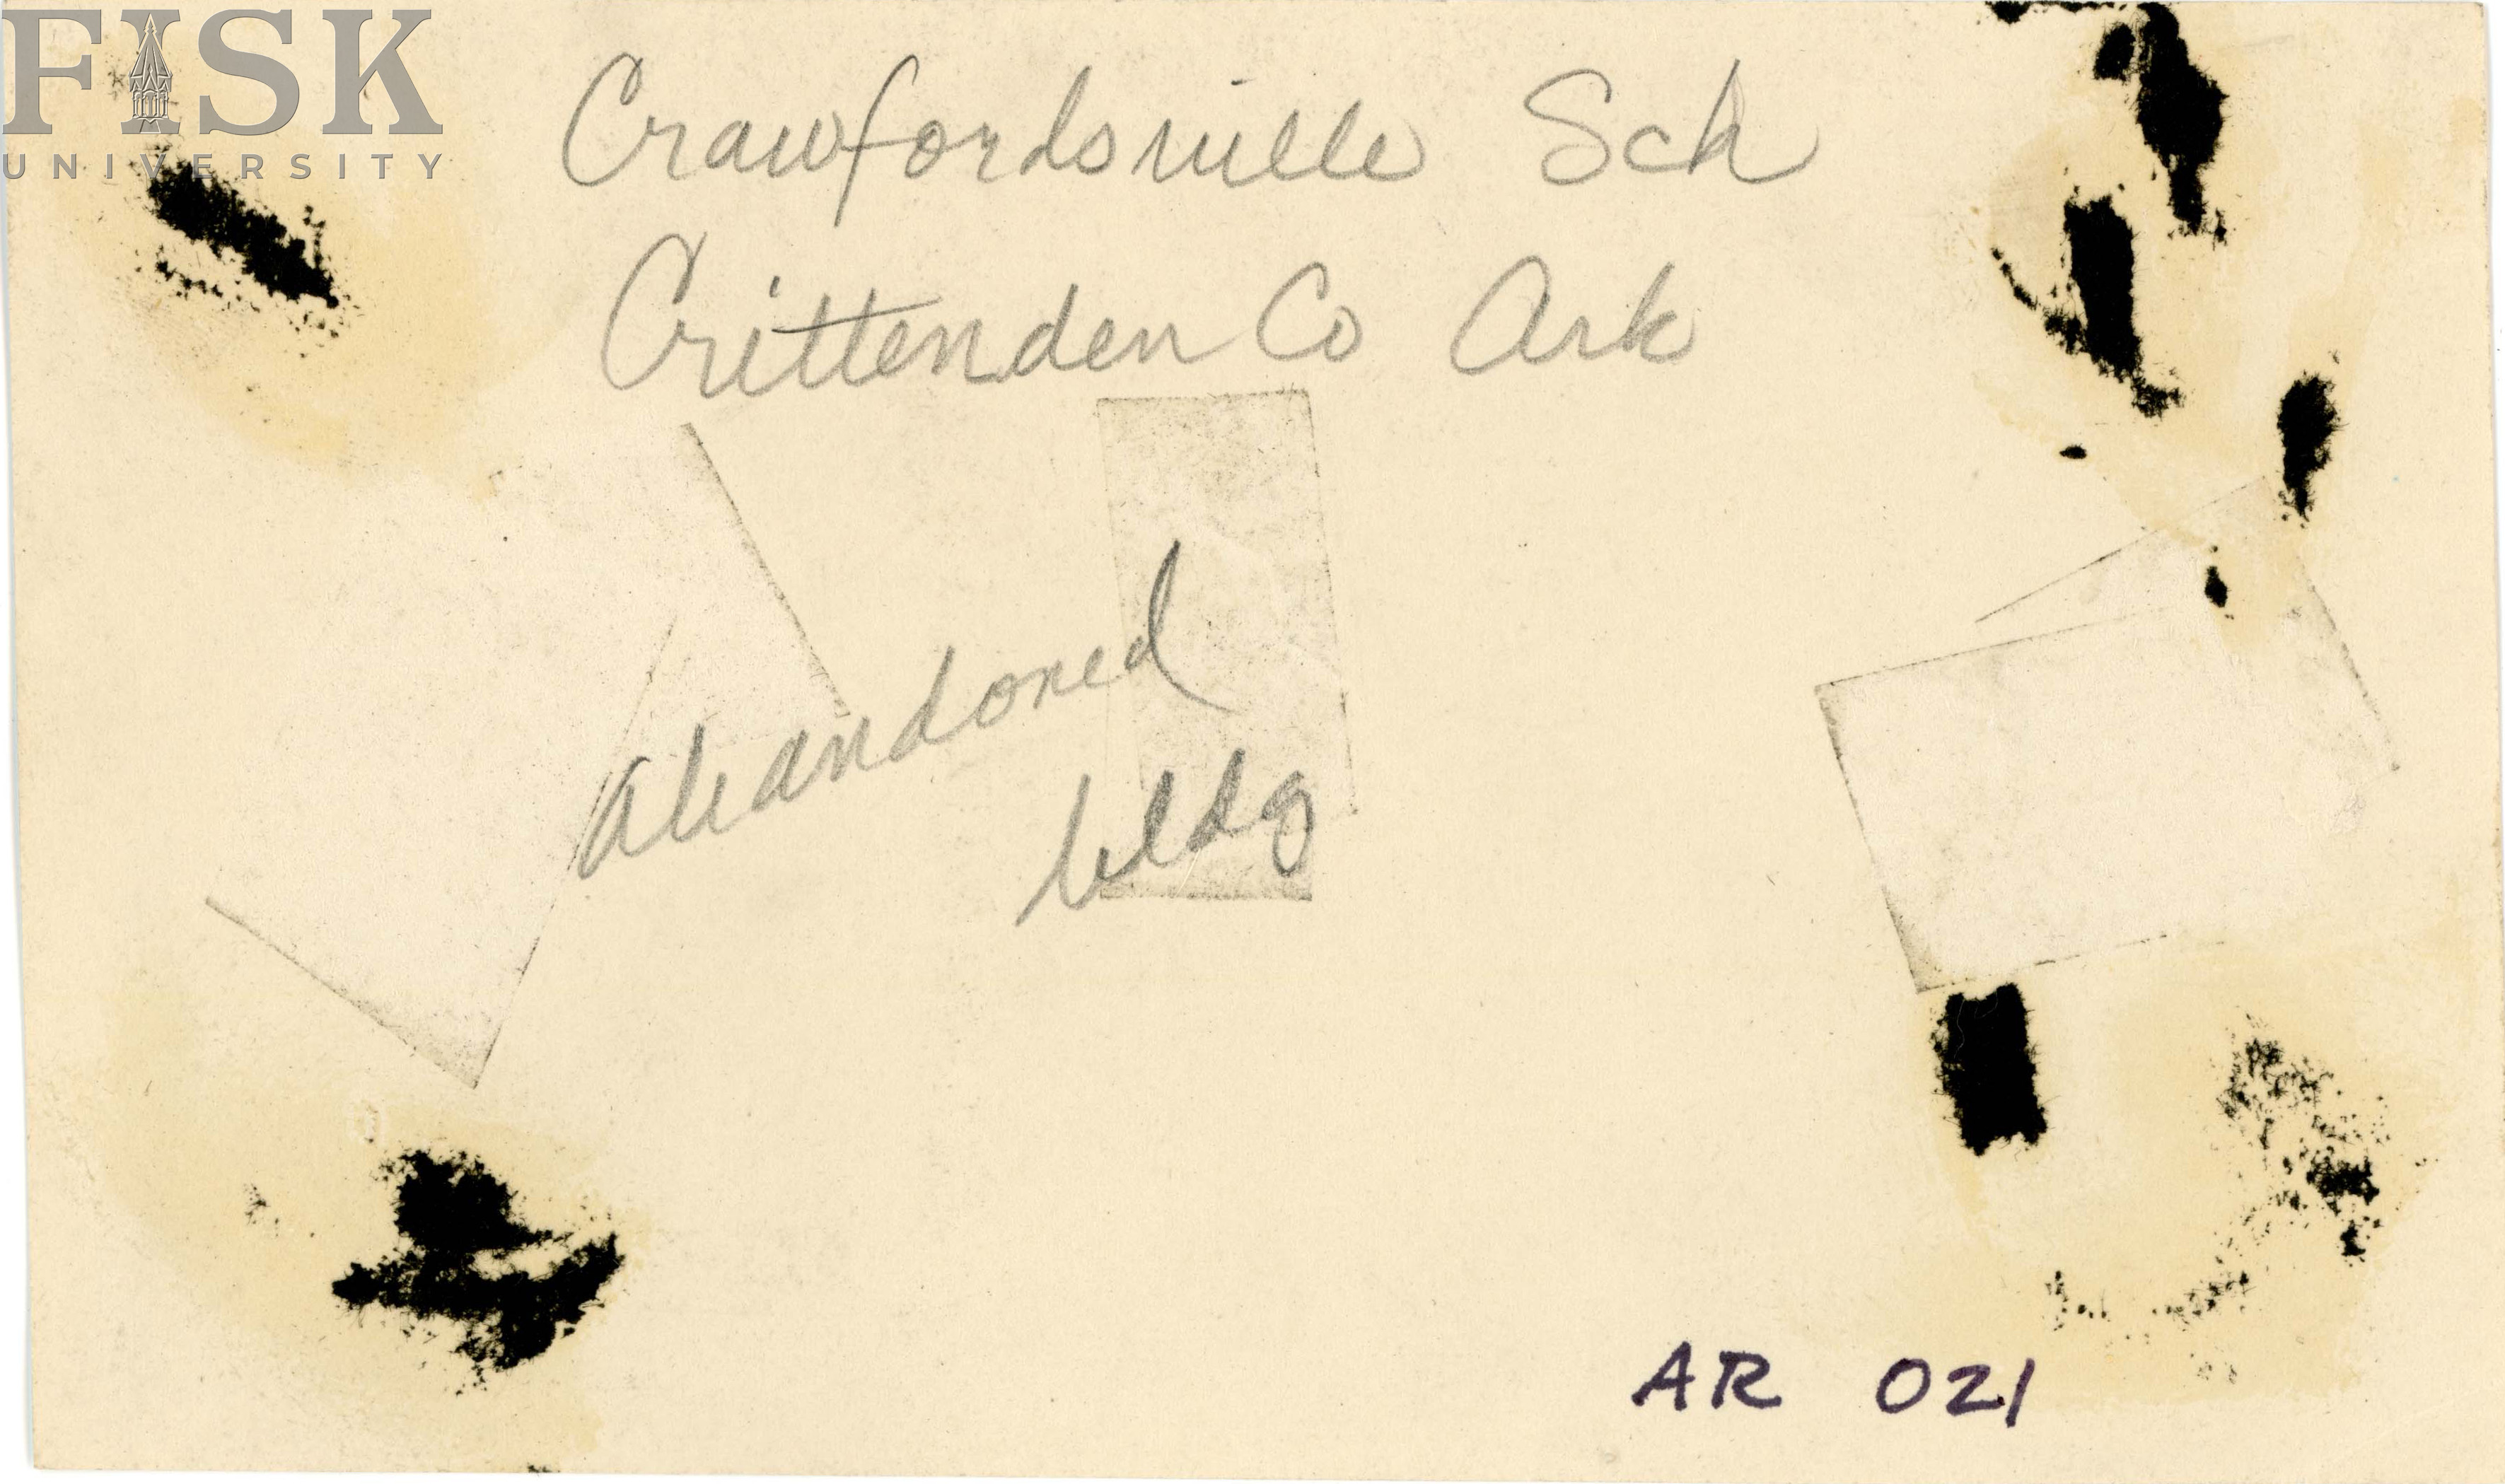 FISK
UNIVERSITY
Crawfordsville Sch
Crittenden Co Ark
abandoned
bldg
AR 021